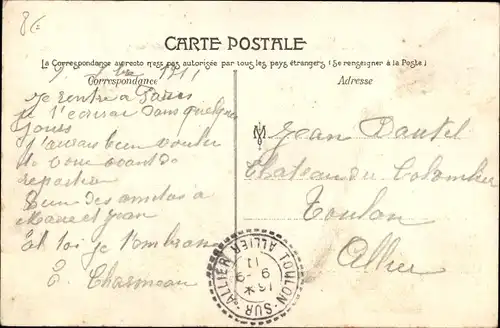 8€
CARTE POSTALE
La Correspondance au recto n'est pas autorisée par tous les pays étrangers (Se renseigner à la Poste)
Correspondance
Adresse
9 7bre 1911
Je rentre à Paris
je t'écrirai dans quelques
jours
J'aurais bien voulu
te voir avant de
repartir
Bien des amitiés à
Marie et Jean
Et toi je t'embrasse
Mr Jean
Chateau du
Toulon
Allier
TOULON-SUR-ALLIER
ALLIER
16
9 -9
11